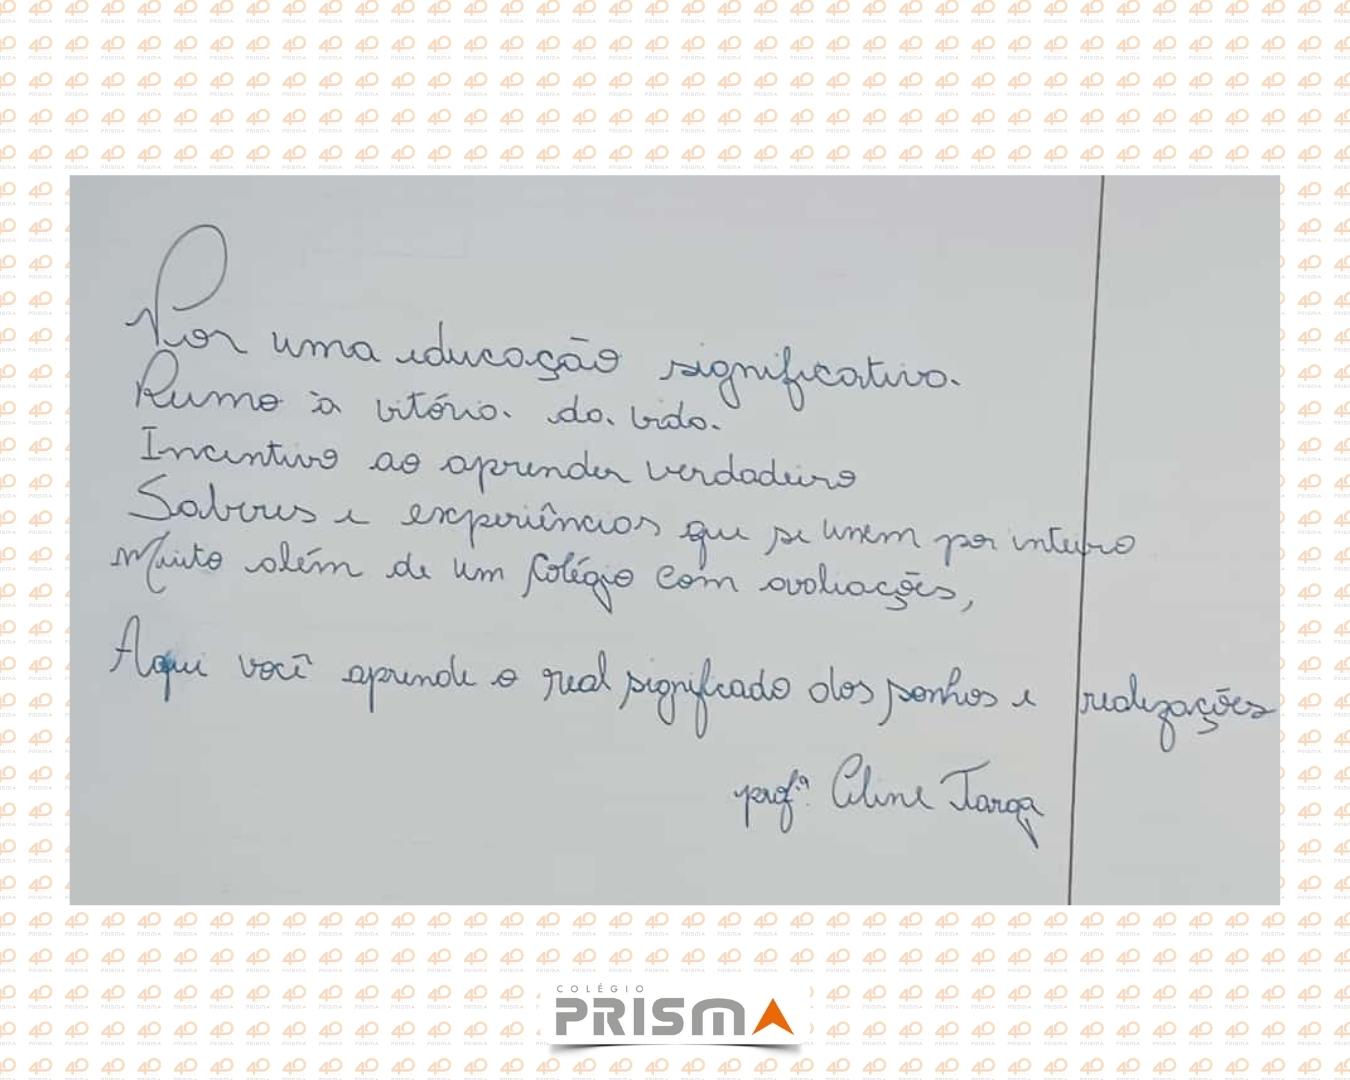 Por uma educação significativa
Rumo à vitória da vida
Incentivo ao aprender verdadeiro
Saberes e experiências que se unem por inteiro
Muito além de um Colégio com avaliações,
Aqui você aprende o real significado dos sonhos e realizações
profª. Celine Targa
COLÉGIO
PRISMA